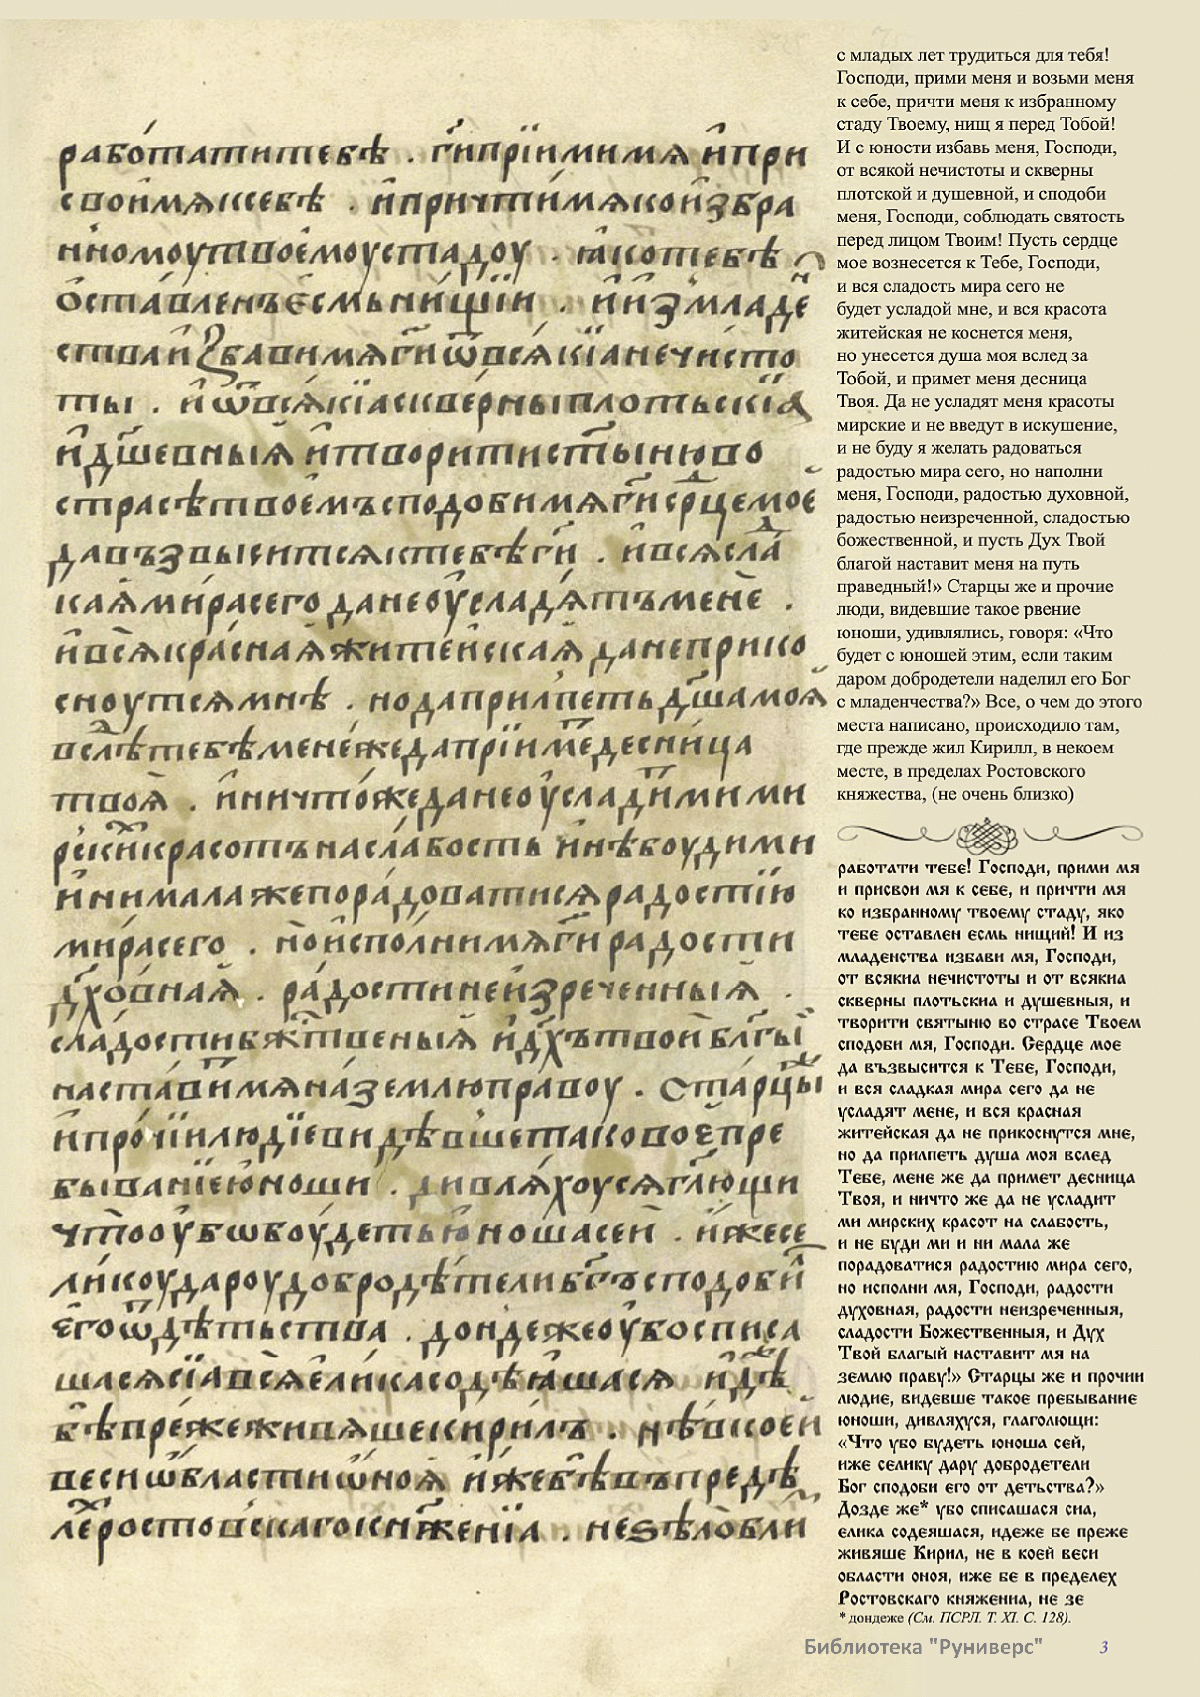 работатитебѣ . гиприимимѧ ипри
своимѧксебѣ . ипричтимѧкоизбра
нномоутвоемоустадоу . ꙗкотебѣ
ѡставленъесмьнищии . иизмладе
стваизбавимѧгиѿвсѧкіанечисто
ты . иѿвсѧкіасквѣрныплотьскіа
идшевныѧ итворитистынюво
страсѣтвоемъсподобимѧгисрцемое
давъзвыситсѧктебѣги . ивсѧсла
каѧмирасего данеоусладѧтъмене .
ивсѧкраснаѧжитейскаѧ данеприко
сноутсѧмнѣ . нодаприлпетьдшамоѧ
вслѣтебѣменежедапріимедесница
твоѧ . иничтожедане оусладимими
рскикрасотънаслабость инѣбоудими
инималажепорадоватисѧрадостію
мирасего . ноисполнимѧгирадости
дховнаѧ . радостинеизреченныѧ .
сладостибжтвеныѧ идхътвойблгы
наставимѧназемлюправоу . старцы
ипрочіилюдіевидѣвшетаковоепре
бываніеюноши . дивлѧхоусѧглющи
чтооубѡбоудетьюношасеи . ижесе
ликоудароудобродѣтелибгъсподоби
егоѿдѣтьства . дондежеоубосписа
шасѧсіавсѧеликасодѣѧшасѧ идѣ
бѣпрежеживѧшекирилъ . нѣвкоей
весиѡбластиѡноѧ ижебѣвъпредѣ
леростовскагокнженіа . неѕѣлобли
с младых лет трудиться для тебя!
Господи, прими меня и возьми меня
к себе, причти меня к избранному
стаду Твоему, нищ я перед Тобой!
И с юности избавь меня, Господи,
от всякой нечистоты и скверны
плотской и душевной, и сподоби
меня, Господи, соблюдать святость
перед лицом Твоим! Пусть сердце
мое вознесется к Тебе, Господи,
и вся сладость мира сего не
будет усладой мне, и вся красота
житейская не коснется меня,
но унесется душа моя вслед за
Тобой, и примет меня десница
Твоя. Да не усладят меня красоты
мирские и не введут в искушение,
и не буду я желать радоваться
радостью мира сего, но наполни
меня, Господи, радостью духовной,
радостью неизреченной, сладостью
божественной, и пусть Дух Твой
благой наставит меня на путь
праведный!» Старцы же и прочие
люди, видевшие такое рвение
юноши, удивлялись, говоря: «Что
будет с юношей этим, если таким
даром добродетели наделил его Бог
с младенчества?» Все, о чем до этого
места написано, происходило там,
где прежде жил Кирилл, в некоем
месте, в пределах Ростовского
княжества, (не очень близко)
работати тебе! Господи, прими мя
и присвои мя к себе, и причти мя
ко избранному твоему стаду, яко
тебе оставлен есмь нищий! И из
младенства избави мя, Господи,
от всякиа нечистоты и от всякиа
скверны плотьскиа и душевныя, и
творити святыню во страсе Твоем
сподоби мя, Господи. Сердце мое
да възвысится к Тебе, Господи,
и вся сладкая мира сего да не
усладят мене, и вся красная
житейская да не прикоснутся мне,
но да прилпеть душа моя вслед
Тебе, мене же да примет десница
Твоя, и ничто же да не усладит
ми мирских красот на слабость,
и не буди ми и ни мала же
порадоватися радостию мира сего,
но исполни мя, Господи, радости
духовная, радости неизреченныя,
сладости Божественныя, и Дух
Твой благый наставит мя на
землю праву!» Старцы же и прочии
людие, видевше такое пребывание
юноши, дивляхуся, глаголющи:
«Что убо будеть юноша сей,
иже селику дару добродетели
Бог сподоби его от детьства?»
Дозде же* убо списашася сиа,
елика содеяшася, идеже бе преже
живяше Кирил, не в коей веси
области оноя, иже бе в пределех
Ростовскаго княжениа, не зе
* дондеже (См. ПСРЛ. Т. XI. С. 128).
Библиотека "Руниверс" 3